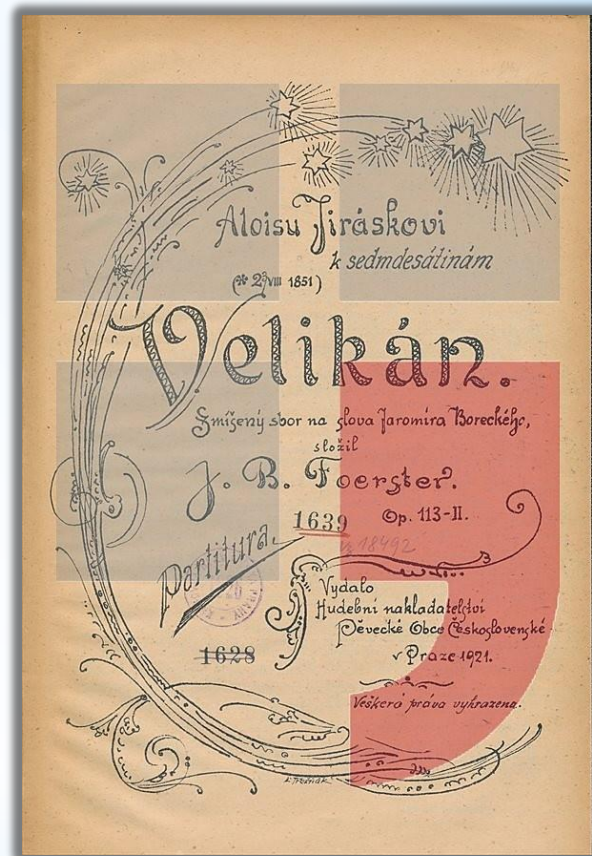 Aloisu Jiráskovi
k sedmdesátinám
(* 23/VIII 1851)
Velikán.
Smíšený sbor na slova Jaromíra Boreckého,
složil
J. B. Foerster.
1639
Op. 113-II.
18492
Partitura.
Vydalo
Hudební nakladatelství
Pěvecké Obce Československé
v Praze 1921.
1628
Veškerá práva vyhrazena.